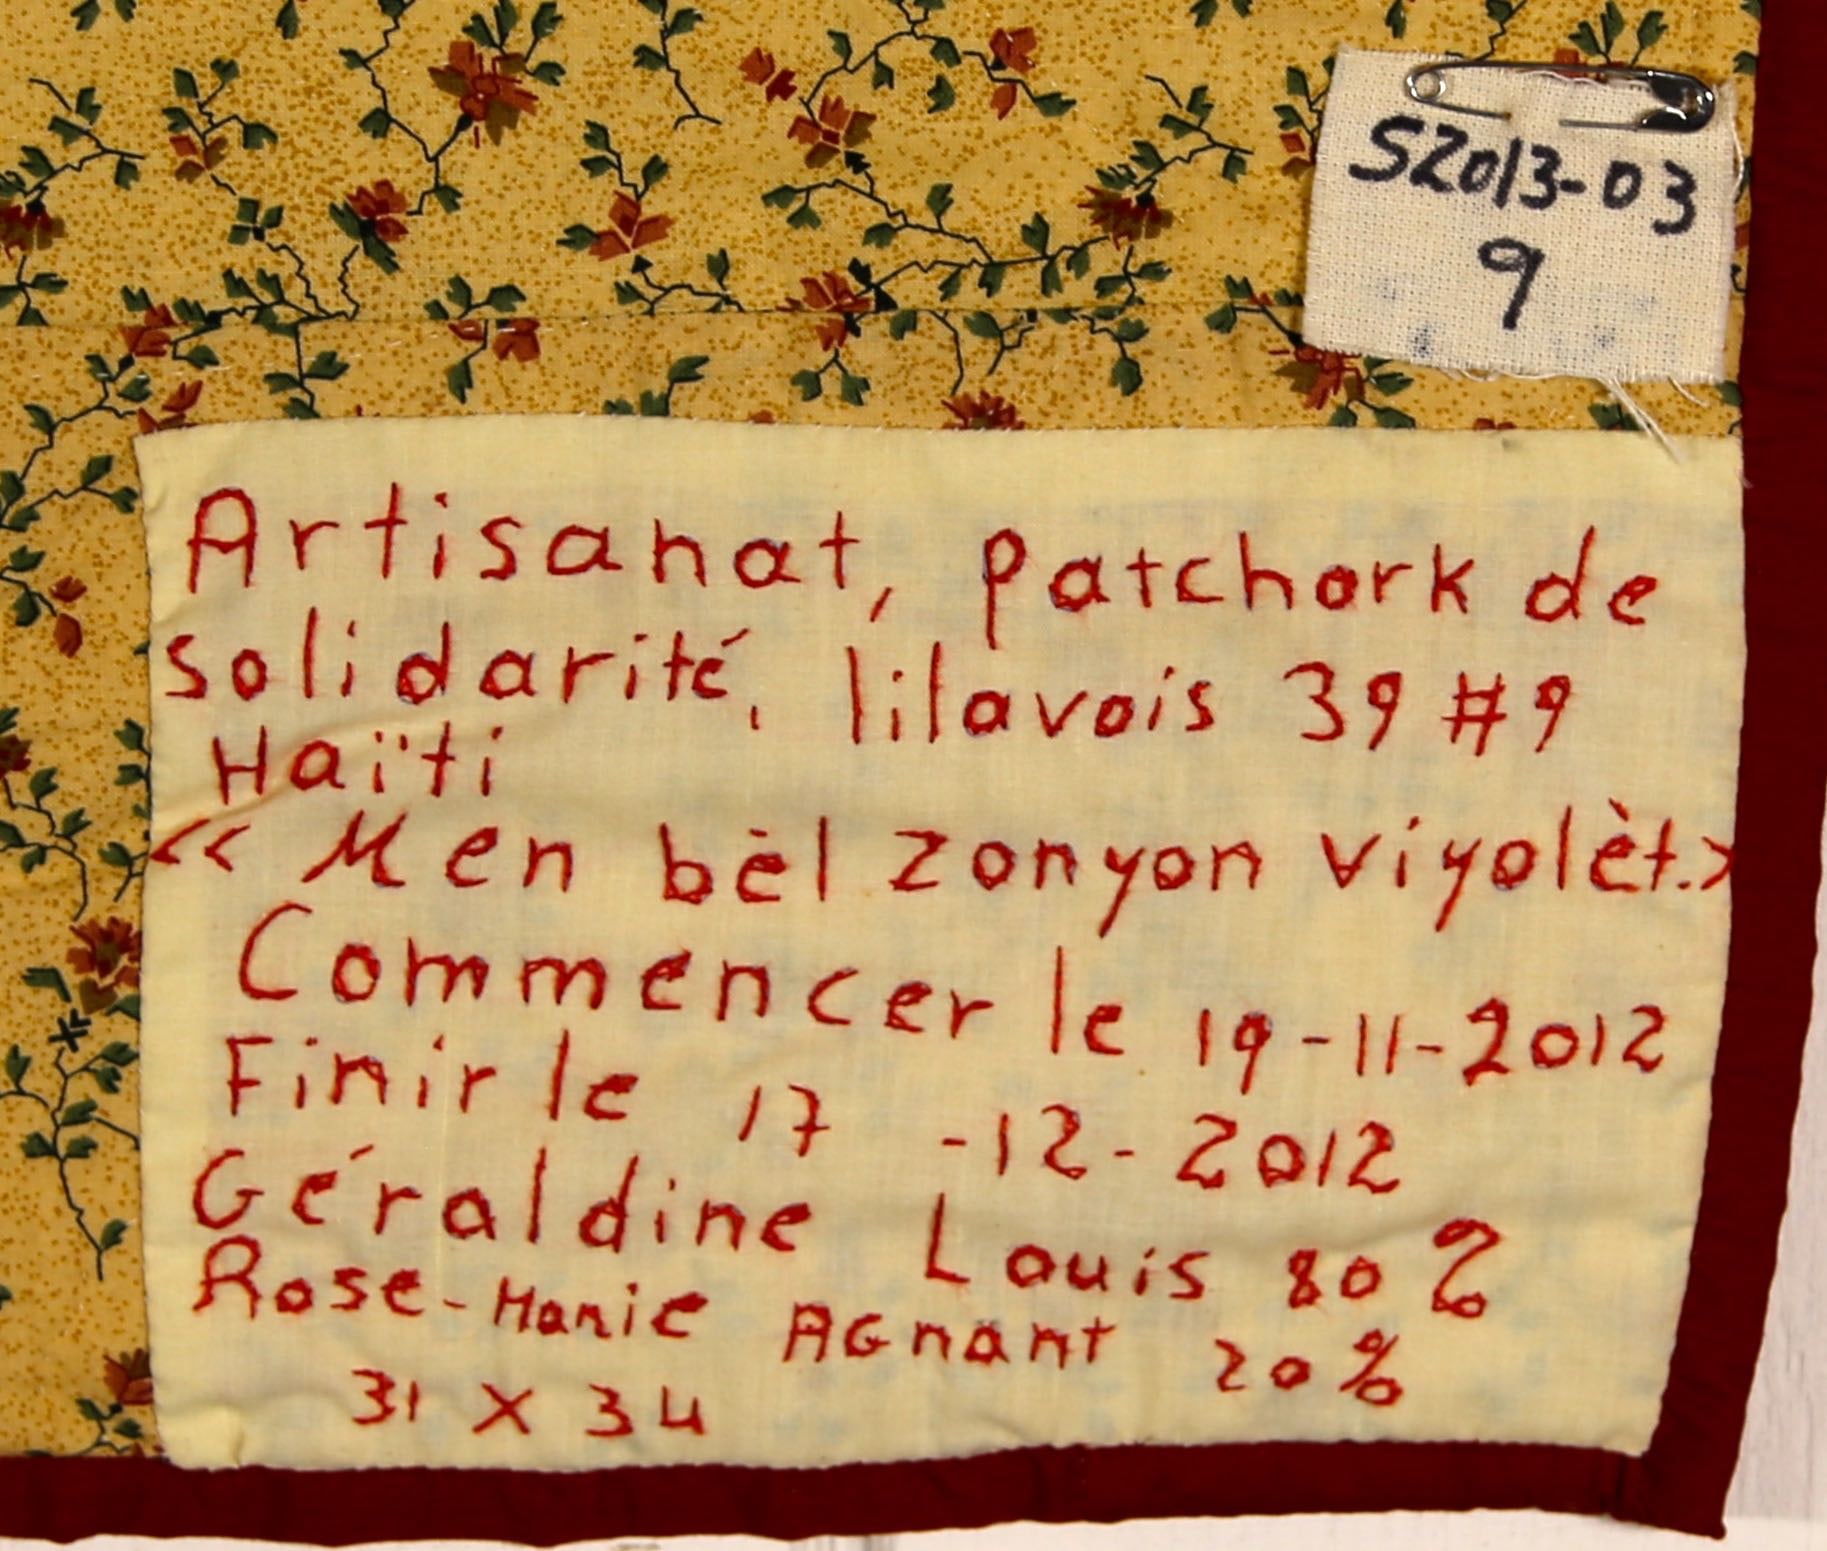 S2013-03
9
Artisanat, Patchork de
solidarité, lilavois 39 #9
Haïti
<< Men bèl zonyon viyolèt.>
Commencer le 19-11-2012
Finir le 17 -12-2012
Géraldine Louis 80%
Rose-Marie AGnant 20%
31 X 34